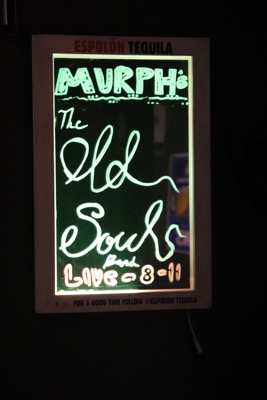 ESPOLÒN TEQUILA
MURPH'S
The
Old
Souls
Band
LIVE - 8-11
FOR A GOOD TIME FOLLOW @ESPOLON TEQUILA